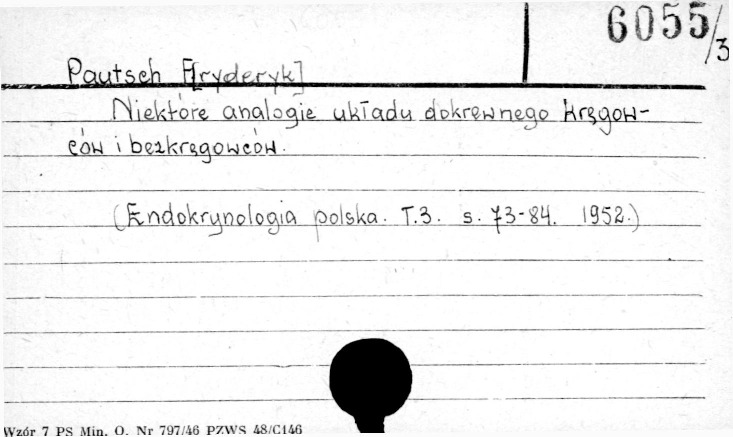 6055/3
Pautsch F[ryderyk]
Niektóre analogie układu dokrewnego kręgow-
ców i bezkręgowców.
(Endokrynologia polska. T.3. s. 73-84. 1952.)
Wzór 7 PS Min. O. Nr 797/46 PZWS 48/C146